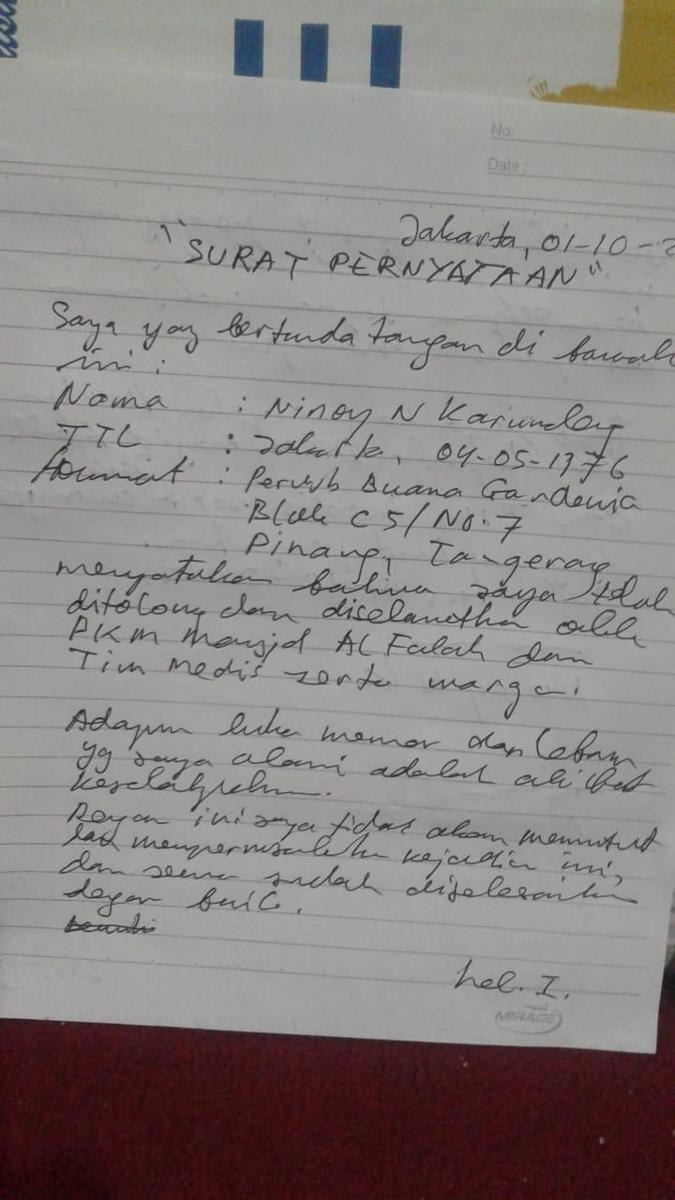 No:
Date:
Jakarta, 01-10-2
"SURAT PERNYATAAN"
Saya yag bertanda tangan di bawah
ini :
Nama : Ninoy N Karundeg
TTL : Jakarta, 04-05-1976
Alamat : Perum Buana Gardenia
Blok C5/No.7
Pinang, Tangerang
menyatakan bahwa saya telah
ditolong dan diselamatka oleh
PKM Masjid Al Falah dan
Tim Medis serta warga.
Adapun luka memar dan lebam
yg saya alami adalah akibat
Degan ini saya tidak akan menuntut
mempermasalahka kejadia ini,
dan semua sudah diselesaika
degan baik.
hal. I.
MIRAGE